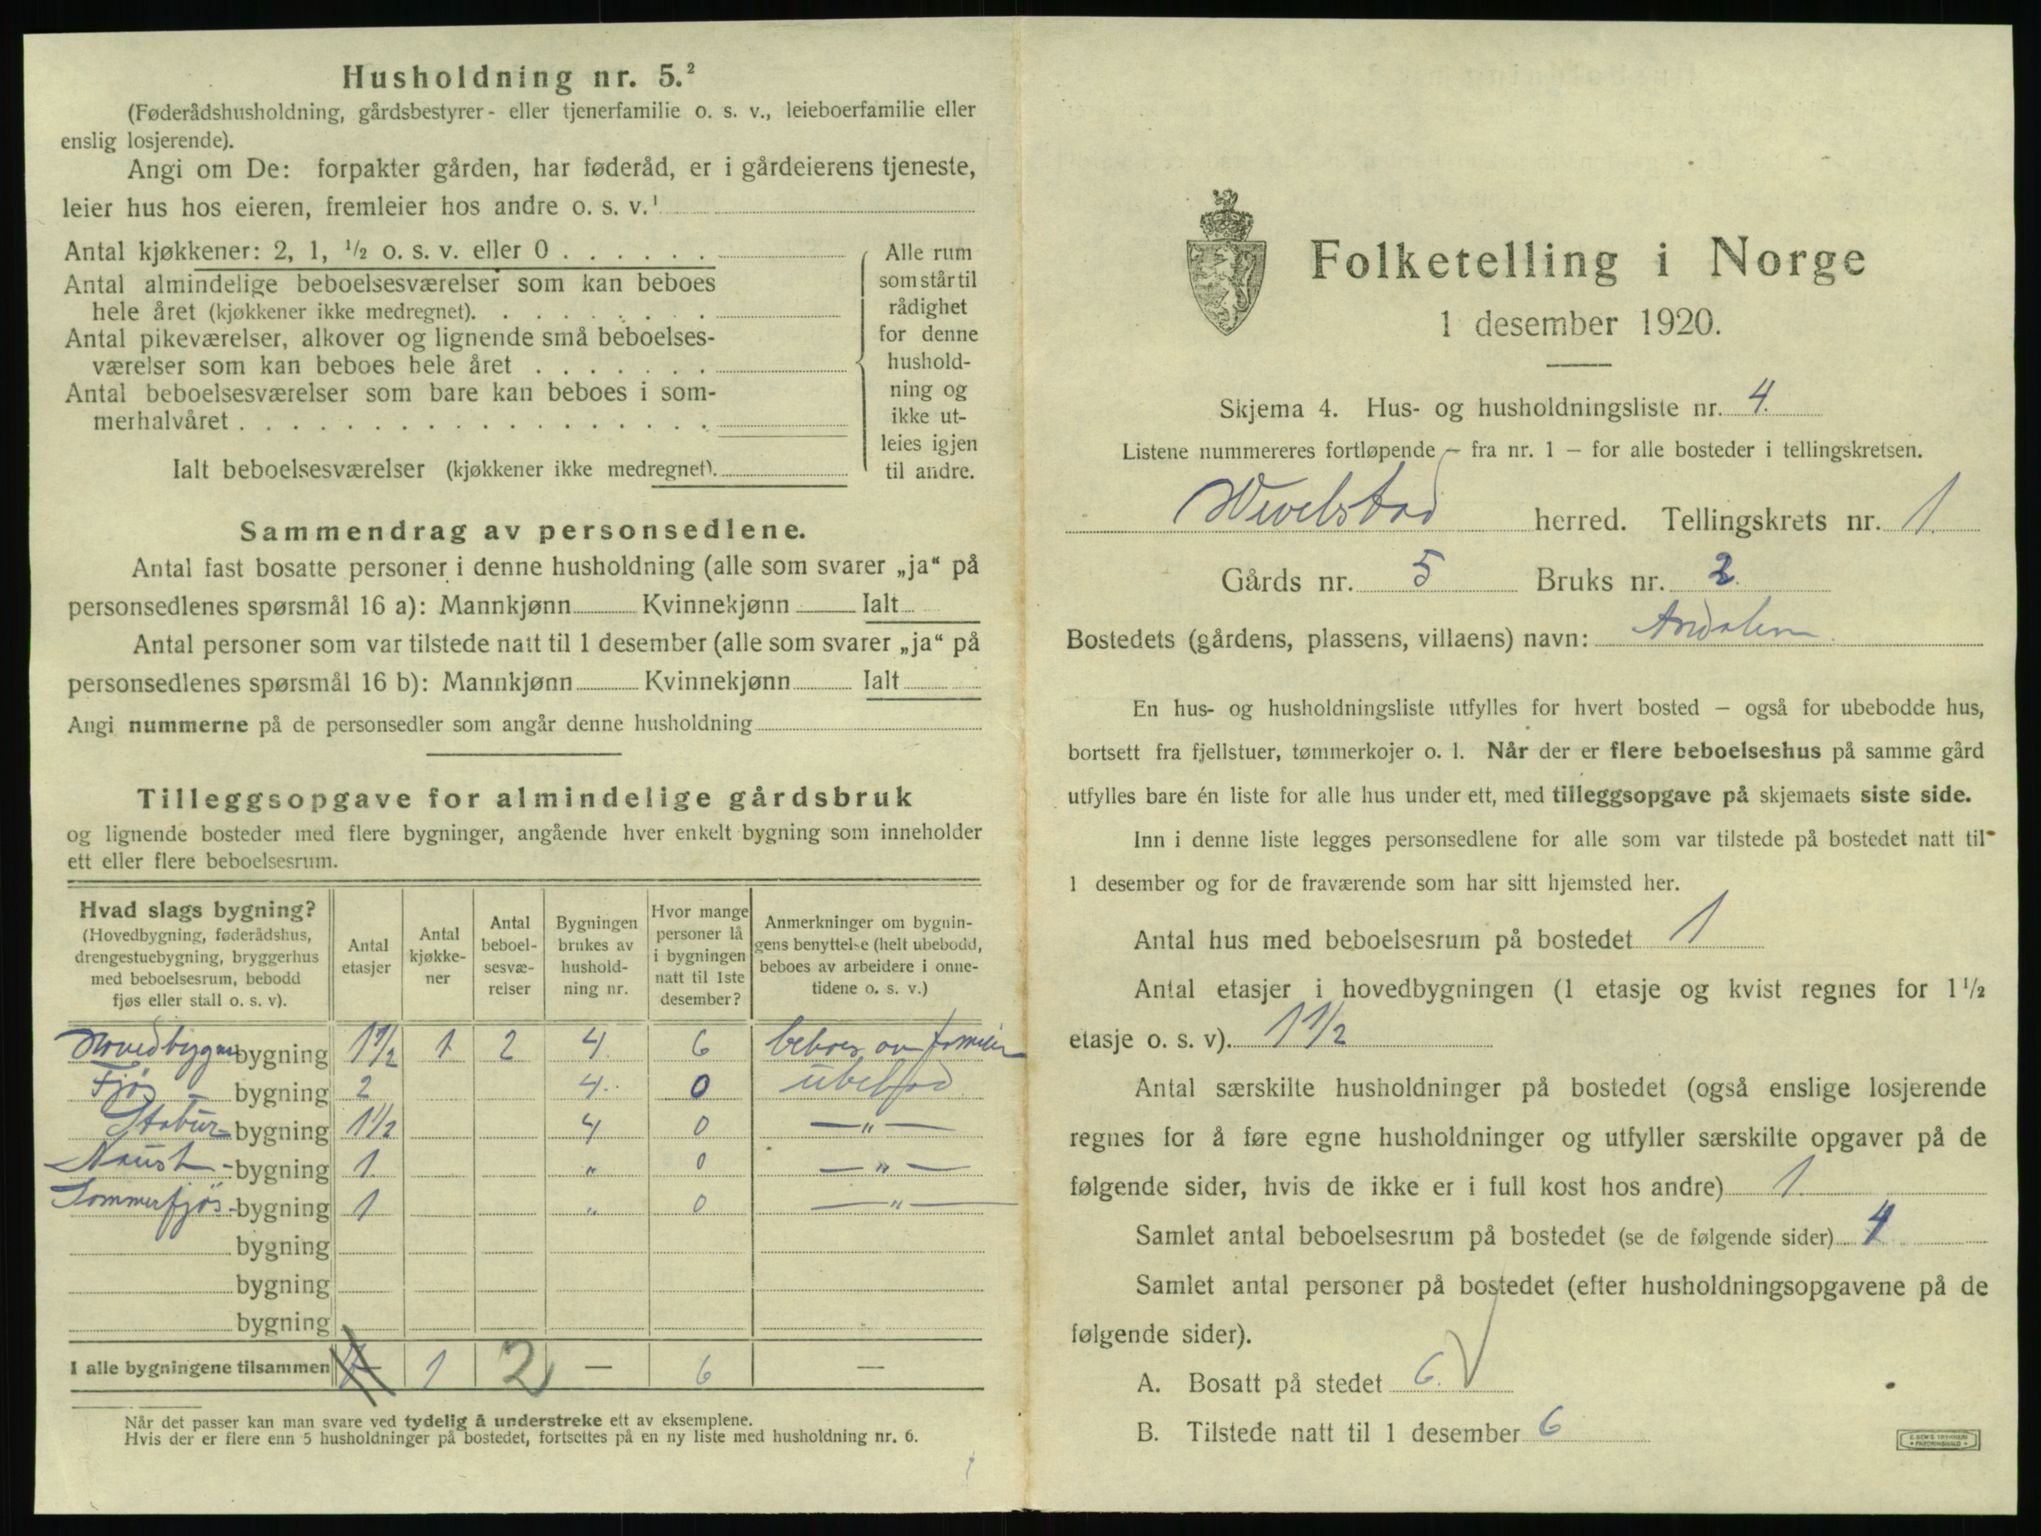 Husholdning nr. 5.²
(Føderådshusholdning, gårdsbestyrer- eller tjenerfamilie o. s. v., leieboerfamilie eller
enslig losjerende).
Angi om De: forpakter gården, har føderåd, er i gårdeierens tjeneste,
leier hus hos eieren, fremleier hos andre o. s. v.¹
Antal kjøkkener: 2, 1, ½ o. s. v. eller 0 . . . . . .
Antal almindelige beboelsesværelser som kan beboes
hele året (kjøkkener ikke medregnet). . . . . . . .
Antal pikeværelser, alkover og lignende små beboelses-
værelser som kan beboes hele året . . . . . . .
Antal beboelsesværelser som bare kan beboes i som-
merhalvåret . . . . . . . . . . . . . . . . . .
Ialt beboelsesværelser (kjøkkener ikke medregnet).
Alle rum
som står til
rådighet
for denne
hushold-
ning og
ikke ut-
leies igjen
til andre.
Sammendrag av personsedlene.
Antal fast bosatte personer i denne husholdning (alle som svarer „ja“ på
personsedlenes spørsmål 16 a): Mannkjønn Kvinnekjønn Ialt
Antal personer som var tilstede natt til 1 desember (alle som svarer „ja“ på
personsedlenes spørsmål 16 b): Mannkjønn Kvinnekjønn Ialt
Angi nummerne på de personsedler som angår denne husholdning
Tilleggsopgave for almindelige gårdsbruk
og lignende bosteder med flere bygninger, angående hver enkelt bygning som inneholder
ett eller flere beboelsesrum.
Hvad slags bygning?
(Hovedbygning, føderådshus,
drengestuebygning, bryggerhus
med beboelsesrum, bebodd
fjøs eller stall o. s. v).
Antal
etasjer
Antal
kjøkke-
ner
Antal
beboel-
sesvæ-
relser
Bygningen
brukes av
hushold-
ning nr.
Hvor mange
personer lå
i bygningen
natt til 1ste
desember?
Anmerkninger om bygnin-
gens benyttelse (helt ubebodd,
beboes av arbeidere i onne-
tidene o. s. v.)
bygning 1½ 1 2 4. 6 beboes av familie
Fjøs bygning 2 4. 0
Stabur- bygning 1½ 4 0 — " —
Naust- bygning 1. " 0 — " —
Sommerfjøs- bygning 1 " 0 — " —
bygning
bygning
bygning
I alle bygningene tilsammen 1 2 — 6 —
Når det passer kan man svare ved tydelig å understreke ett av eksemplene.
Hvis der er flere enn 5 husholdninger på bostedet, fortsettes på en ny liste med husholdning nr. 6.
Folketelling i Norge
1 desember 1920.
Skjema 4. Hus- og husholdningsliste nr. 4.
Listene nummereres fortløpende – fra nr. 1 – for alle bosteder i tellingskretsen.
Wevelstad herred. Tellingskrets nr. 1.
Gårds nr. 5 Bruks nr. 2.
Bostedets (gårdens, plassens, villaens) navn:
En hus- og husholdningsliste utfylles for hvert bosted – også for ubebodde hus,
bortsett fra fjellstuer, tømmerkojer o. l. Når der er flere beboelseshus på samme gård
utfylles bare én liste for alle hus under ett, med tilleggsopgave på skjemaets siste side.
Inn i denne liste legges personsedlene for alle som var tilstede på bostedet natt til
1 desember og for de fraværende som har sitt hjemsted her.
Antal hus med beboelsesrum på bostedet 1
Antal etasjer i hovedbygningen (1 etasje og kvist regnes for 1½
etasje o. s. v). 1½
Antal særskilte husholdninger på bostedet (også enslige losjerende
regnes for å føre egne husholdninger og utfyller særskilte opgaver på de
følgende sider, hvis de ikke er i full kost hos andre) 1.
Samlet antal beboelsesrum på bostedet (se de følgende sider) 4
Samlet antal personer på bostedet (efter husholdningsopgavene på de
følgende sider).
A. Bosatt på stedet 6.
B. Tilstede natt til 1 desember 6